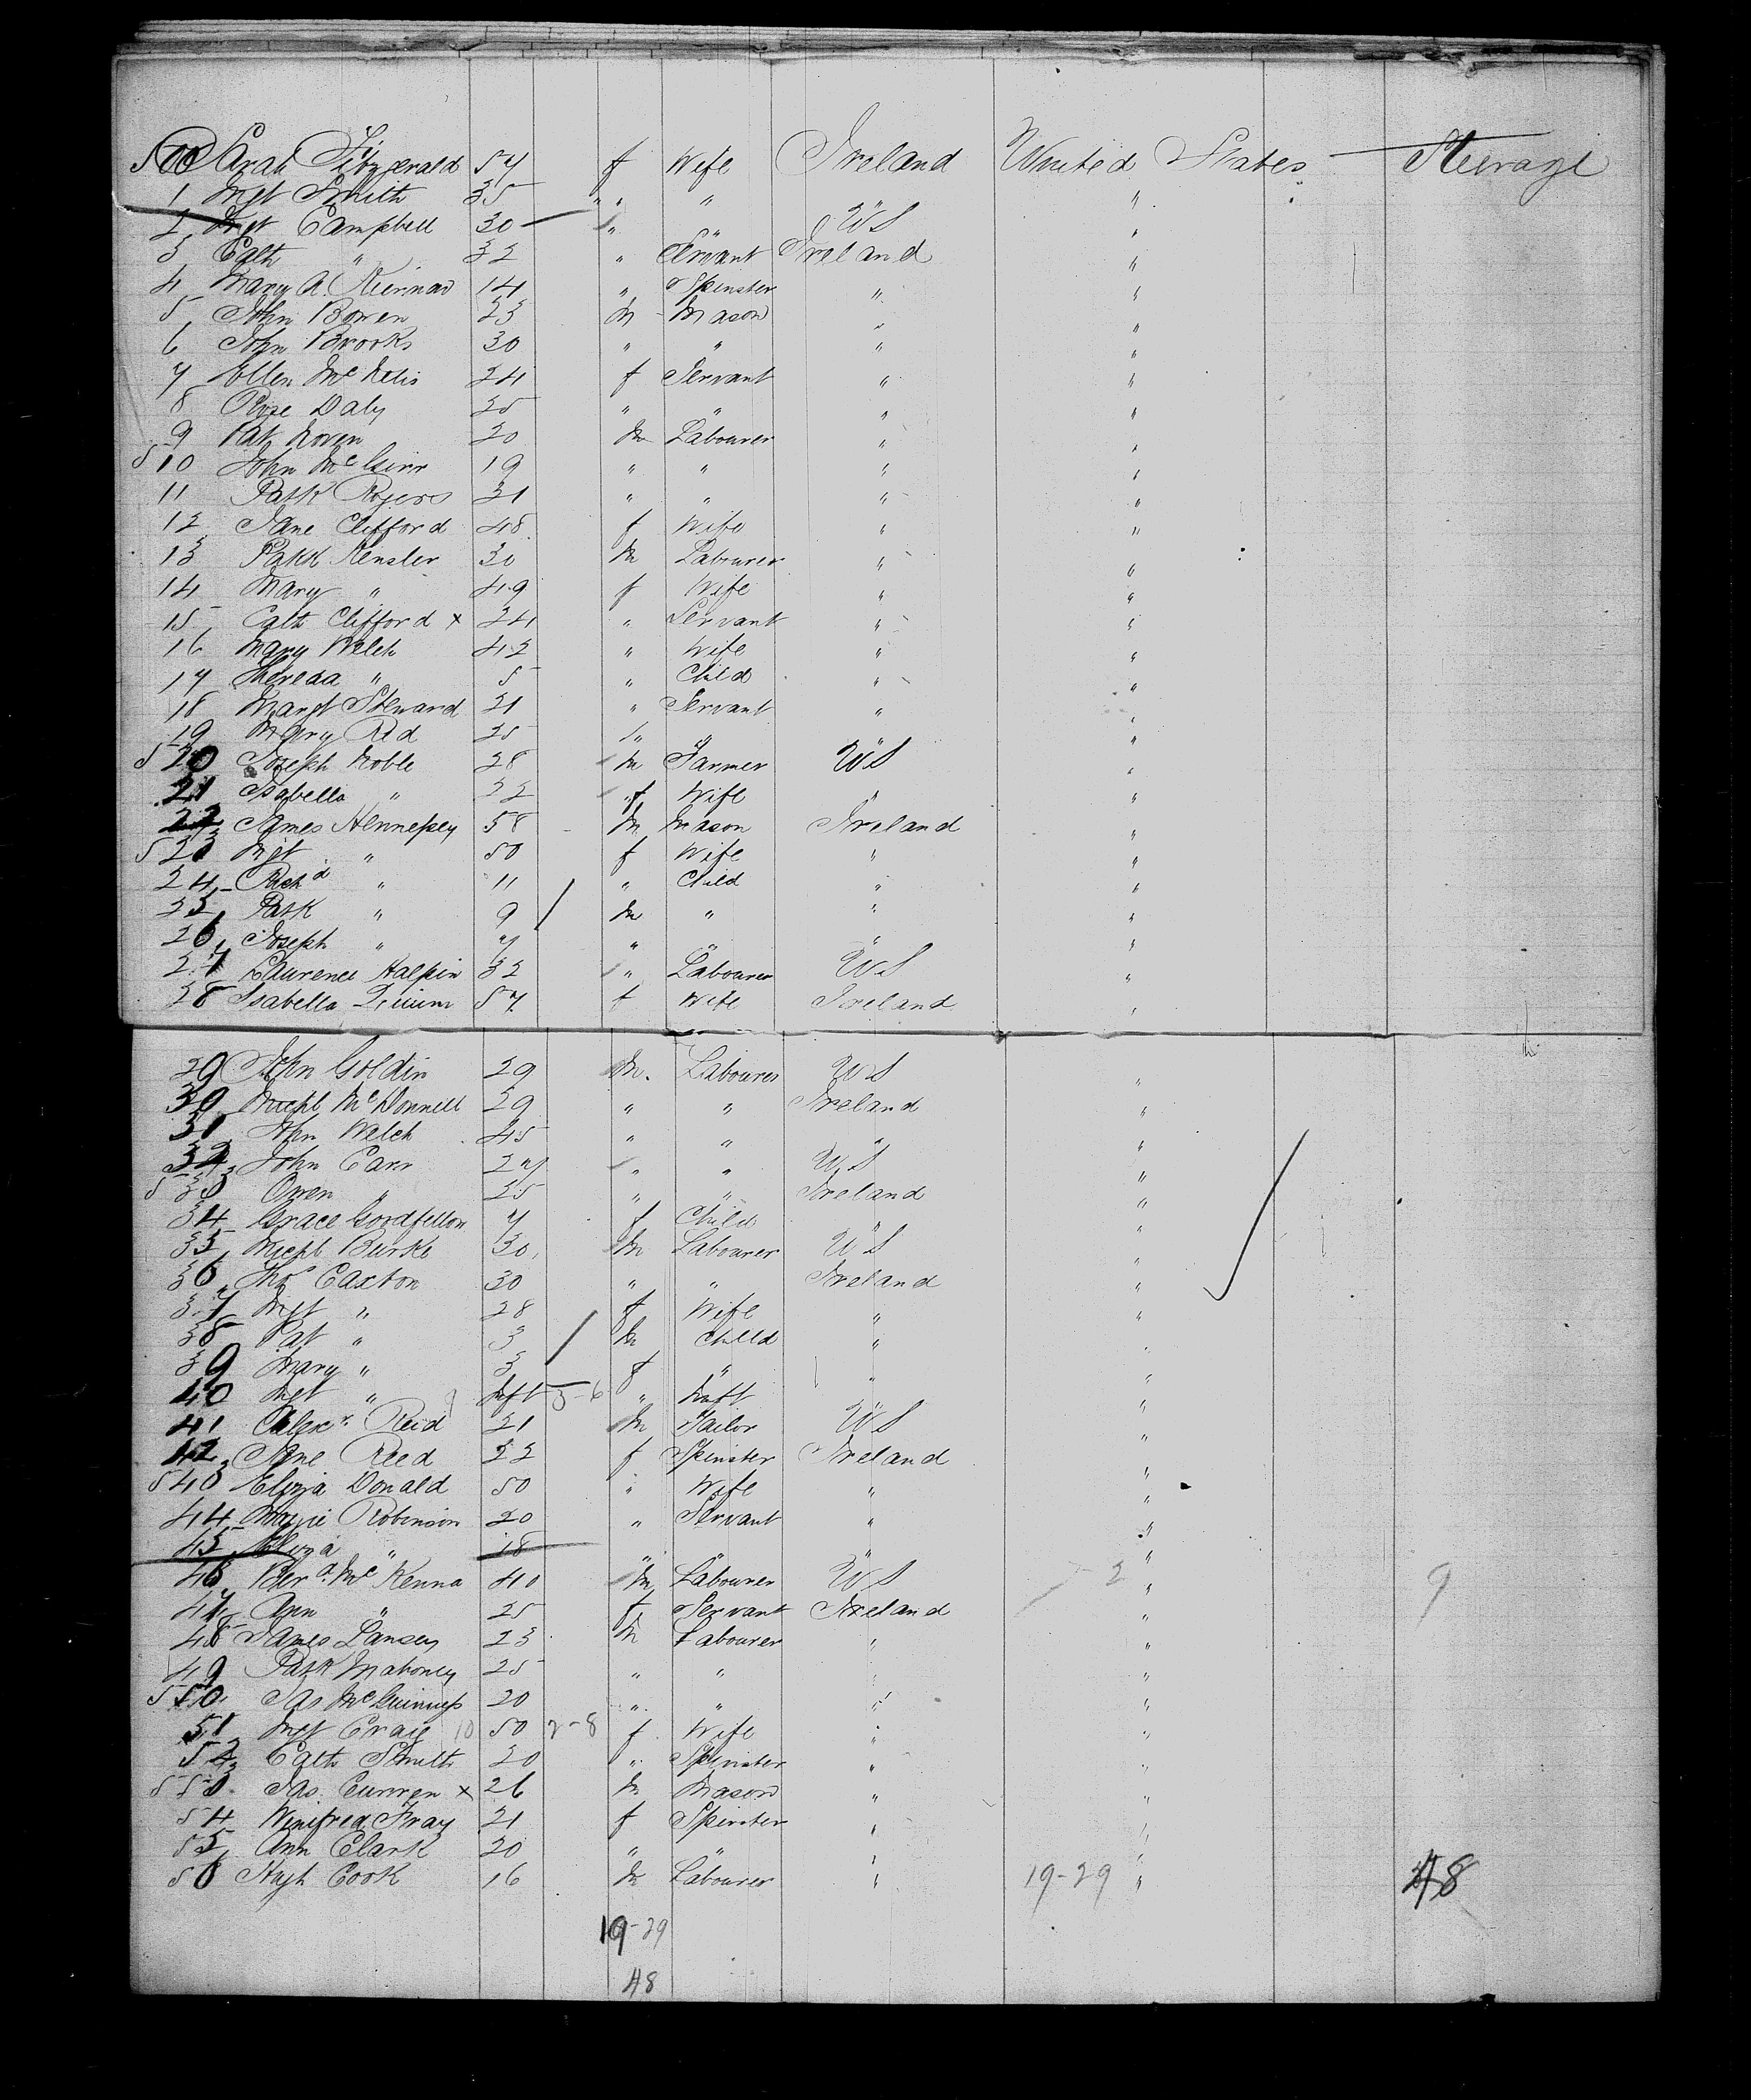 500 Sarah Fitzgerald 57 f Wife Ireland United States Steerage
1 Mgt Smith 35 " " " "
2 Mgt Campbell 30 " " US "
3 Cath " 32 " Servant Ireland "
4 Mary A. Kiernan 14 " Spinster " "
5 John Bowen 23 m Mason " "
6 John Brooks 30 " " " "
7 Ellen Mc 24 f Servant " "
8 Rose Daly 25 " " " "
9 Pat 20 m Labourer " "
510 John McGirr 19 " " " "
11 Patk Rogers 21 " " " "
12 Jane Clifford 48 f Wife " "
13 Patk Kensler 30 m Labourer " "
14 Mary " 49 f Wife " "
15 Cath Clifford x 24 " Servant " "
16 Mary Welch 42 " Wife " "
17 Theresa " 5 " Child " "
18 Margt Steward 21 " Servant " "
19 Mary Reid 25 " " " "
520 Joseph Noble 28 m Farmer US "
21 Isabella " 22 f Wife " "
22 James Hennessey 58 m Mason Ireland "
523 Mgt " 50 f Wife " "
24 Richd " 11 " Child " "
25 Patk " 9 m " " "
26 Joseph " 7 " " " "
27 Laurence Halpin 32 " Labourer US "
28 Isabella 57 f Wife Ireland "
29 John Goldin 29 m. Labourer US "
30 Michl McDonnell 29 " " Ireland "
31 John Welch 45 " " " "
32 John Carr 27 " " US "
533 Owen " 25 " " Ireland "
34 Grace Goodfellow 7 f Child " "
35 Michl Burke 30 m Labourer US "
36 Thos Caxton 30 " " Ireland "
37 Mgt " 28 f Wife " "
38 Pat " 3 m Child " "
39 Mary " 3 f " " "
40 Mgt " Inft 5-6 " Inft " "
41 Alexr. Reid 21 m Tailor US "
42 Jane Reed 22 f Spinster Ireland "
543 Eliza Donald 50 " Wife " "
44 Maggie Robinson 20 " Servant " "
45 Eliza " 18 " " " "
46 Berd. McKenna 40 m Labourer US 2 " 9
47 Ann " 25 f Servant Ireland "
48 James Lansey 23 m Labourer " "
49 Patk Mahoney 25 " " " "
550 Jas McGuinness 20 " " " "
51 Mgt Craig 10 50 2-8 f Wife " "
52 Cath Smith 20 " Spinster " "
553 Jas. Curren x 26 m Mason " "
54 Winifred Fray 21 f Spinster " "
55 Ann Clark 20 " " " "
56 Hugh Cook 16 m Labourer " 19-29 " 48
19-29
48